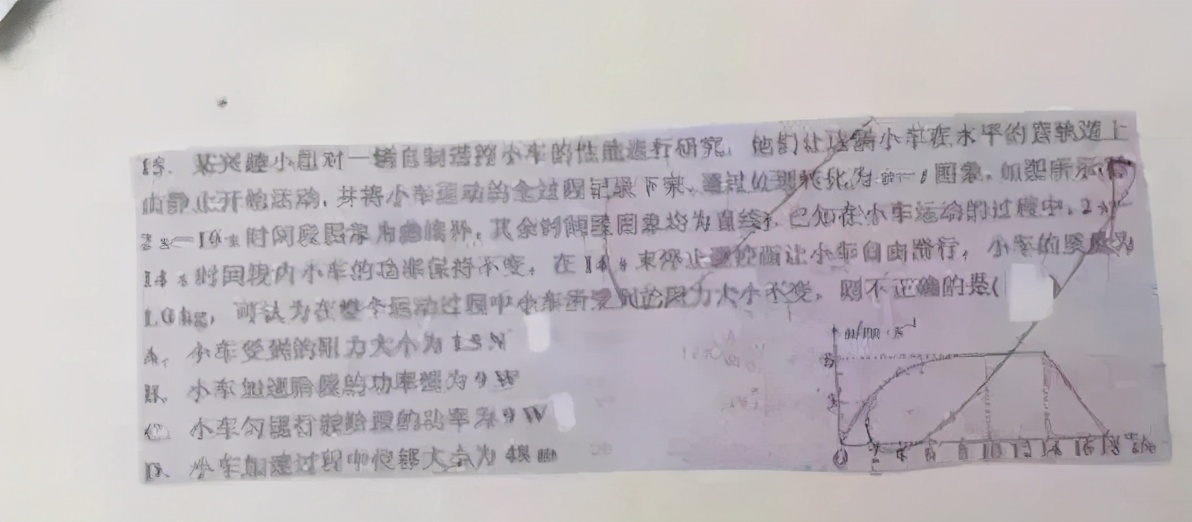 15. 某兴趣小组对一辆自制遥控小车的性能进行研究,他们让这辆小车在水平的直轨道上
由静止开始运动,并将小车运动的全过程记录下来,通过处理转化为 v—t 图象,如图所示(
2 s—10 s 时间段图象为曲线外,其余时间段图象均为直线),已知在小车运动的过程中,2 s—
14 s 时间段内小车的功率保持不变,在 14 s 末停止遥控而让小车自由滑行,小车的质量为
1.0 kg,可认为在整个运动过程中小车所受到的阻力大小不变,则不正确的是(
A. 小车受到的阻力大小为 1.5 N
B. 小车加速阶段的功率 为 9 W
C. 小车匀速行驶阶段的功率为 9 W
D. 小车加速过程中位移大小为 4 m
v/m·s⁻¹
6
3
0 2 4 6 8 10 12 14 16 18 t/s